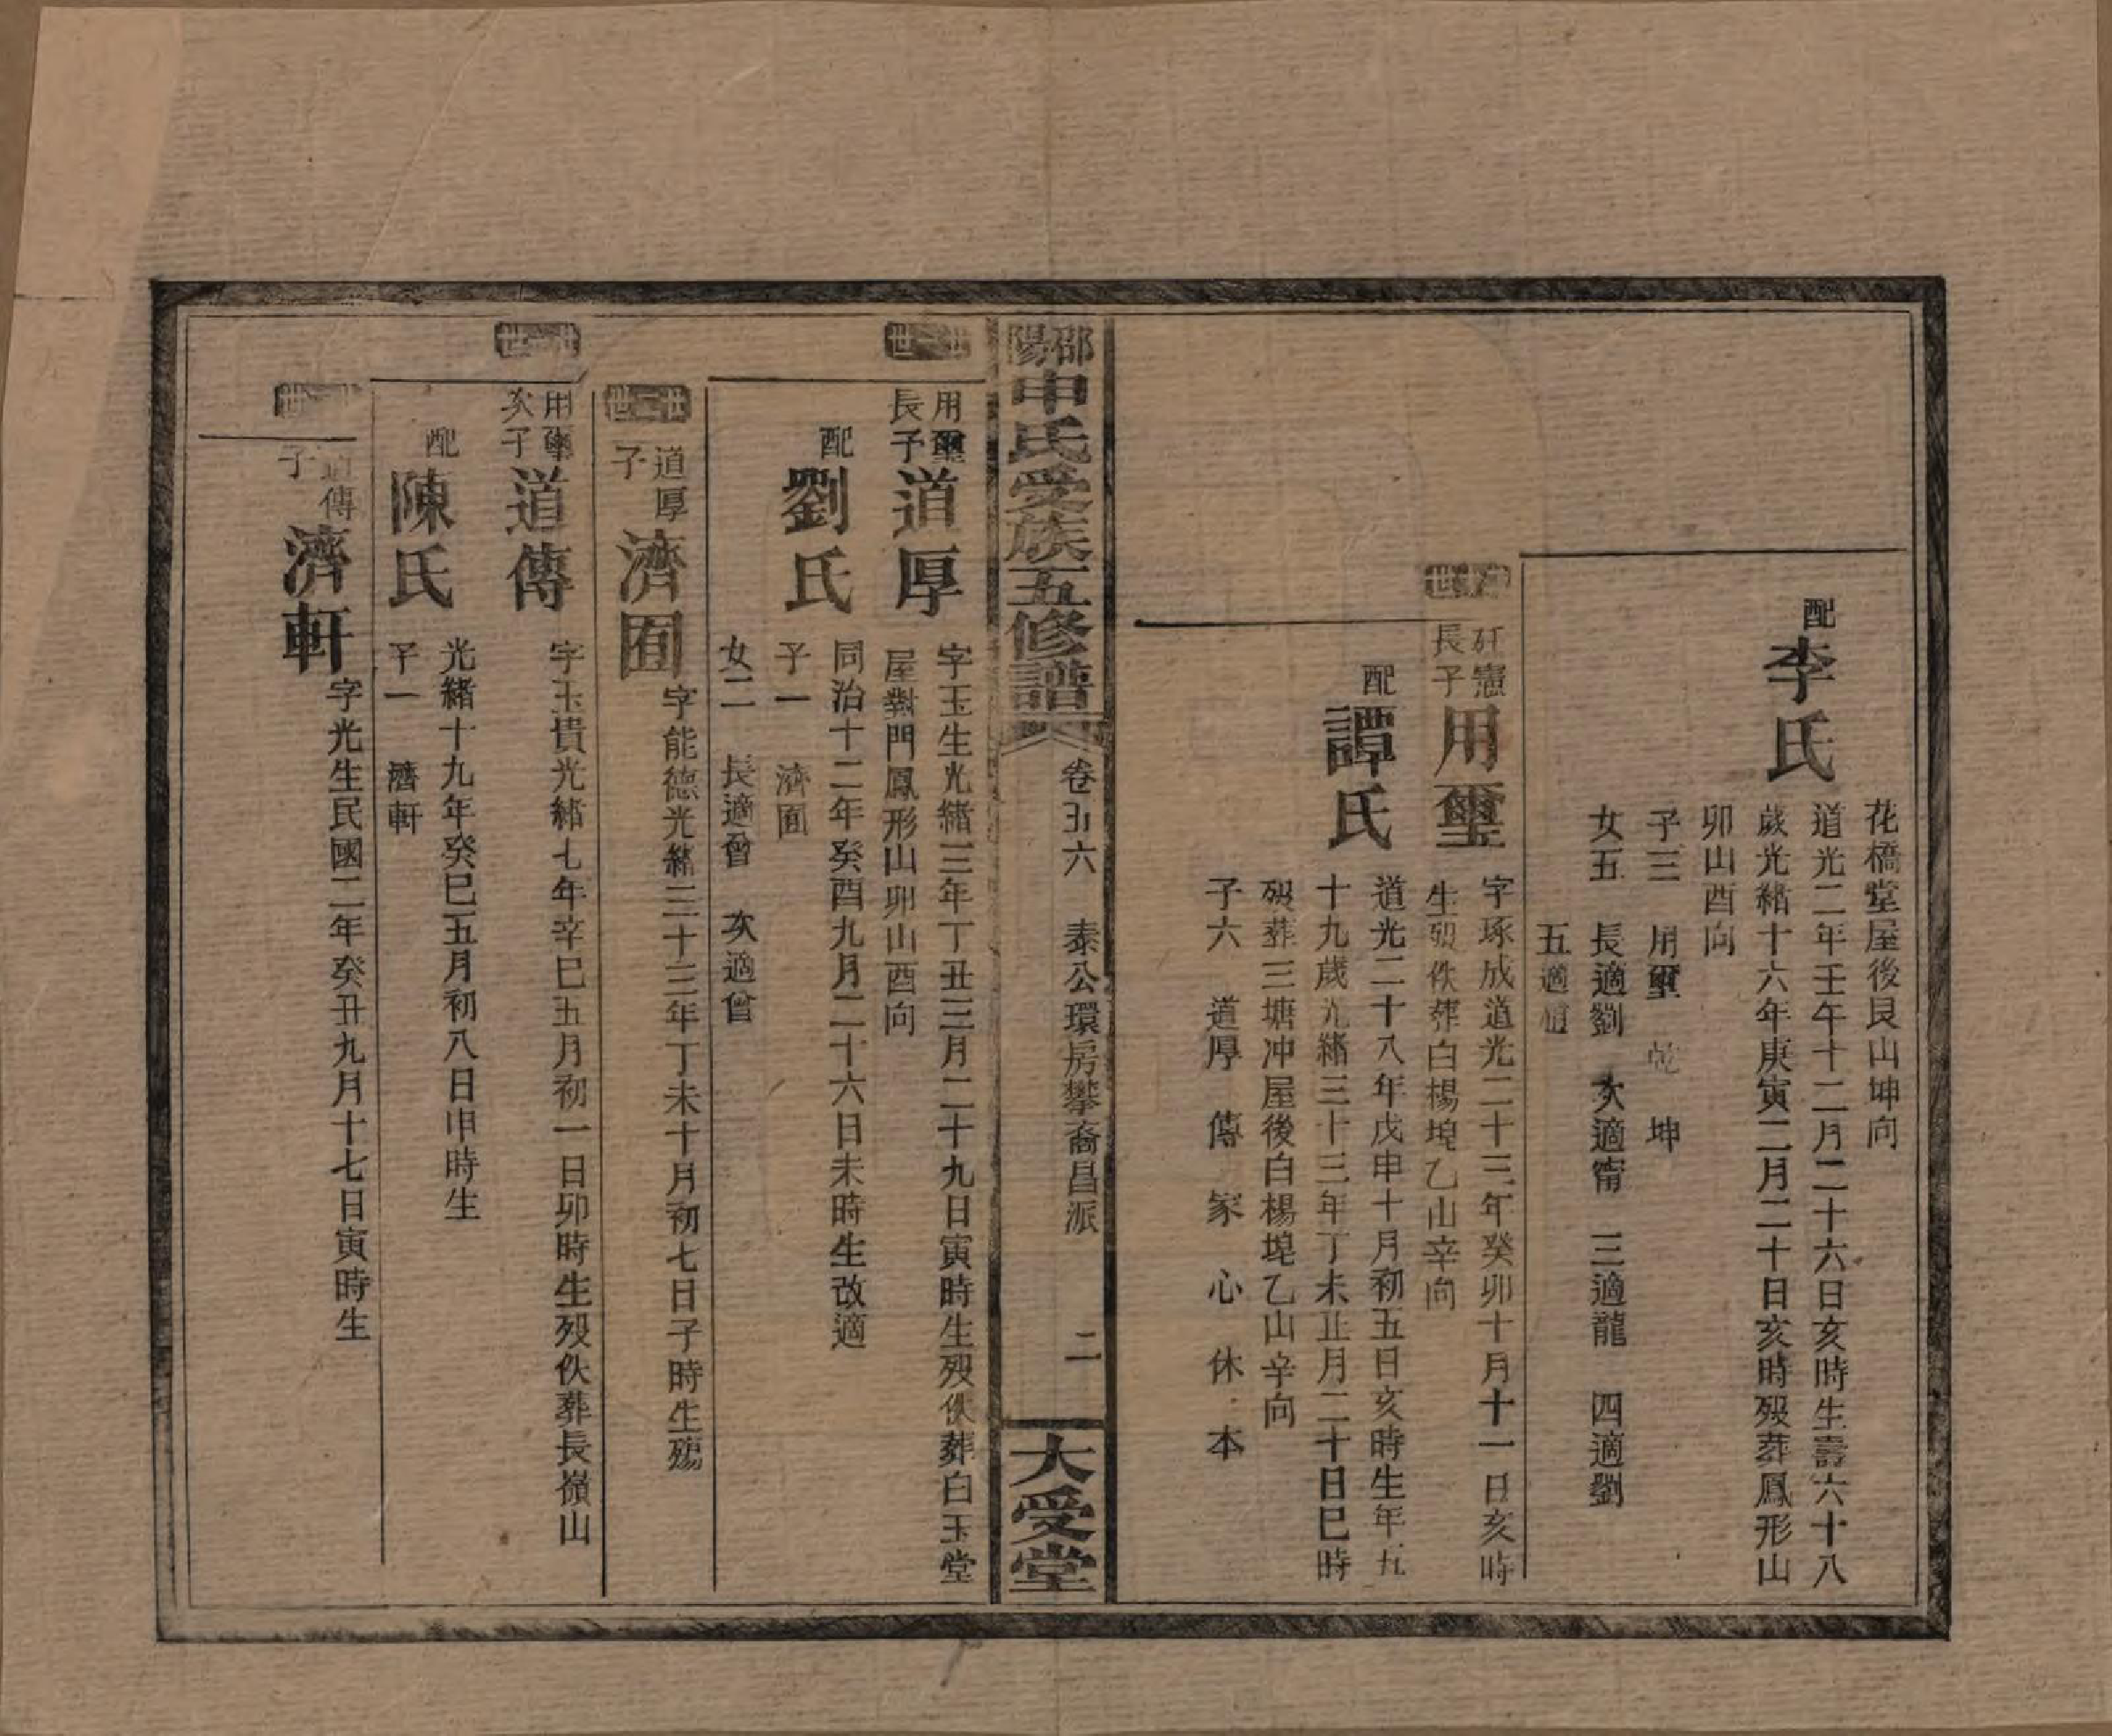 花橋堂屋後艮山坤向
配李氏
道光二年壬午十二月二十六日亥時生壽六十八
歲光緒十六年庚寅二月二十日亥時歿葬鳳形山
卯山酉向
子三 用璽 乾 坤
女五 長適劉 次適甯 三適龍 四適劉
五適
憲長子用璽
字琢成道光二十三年癸卯十月十一日亥時
生歿佚葬白楊塊乙山辛向
配譚氏
道光二十八年戊申十月初五日亥時生年五
十九歲光緒三十三年丁未正月二十日巳時
歿葬三塘冲屋後白楊塊乙山辛向
子六 道厚 傳 家 心 休 本
邵陽申氏受族五修譜
卷 六 泰公環房攀裔昌派 二
大受堂
用璽長子道厚
字玉生光緒三年丁丑三月二十九日寅時生歿佚葬白玉堂
屋對門鳳形山卯山酉向
配劉氏
同治十二年癸酉九月二十六日未時生改適
子一 濟囿
女二 長適曾 次適曾
道厚子濟囿
字能德光緒三十三年丁未十月初七日子時生殤
用璽次子道傳
字玉貴光緒七年辛巳五月初一日卯時生歿佚葬長嶺山
配陳氏
光緒十九年癸巳五月初八日申時生
子一 濟軒
道傳子濟軒
字光生民國二年癸丑九月十七日寅時生